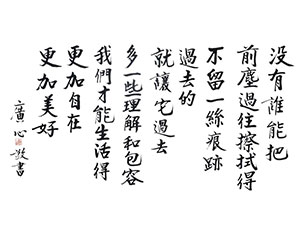 没有誰能把
前塵過往擦拭得
不留一絲痕跡
過去的
就讓它過去
多一些理解和包容
我們才能生活得
更加自在
更加美好
廣心敬書